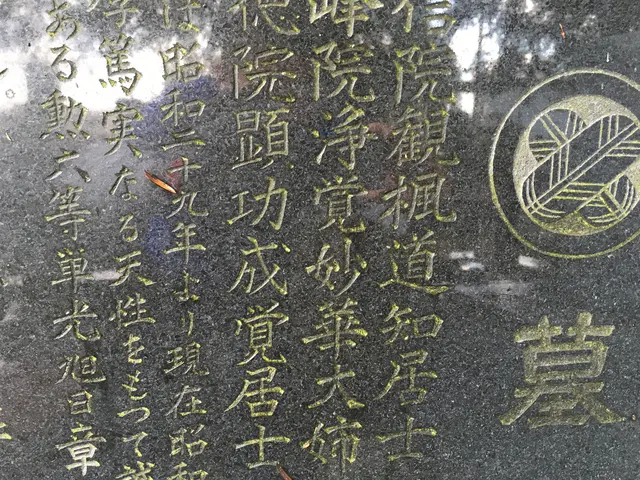 墓
信院観楓道知居士
峰院浄覚妙華大姉
徳院顕功成覚居士
は昭和二十九年より現在昭和
厚篤実なる天性をもって誠
ある勲六等単光旭日章